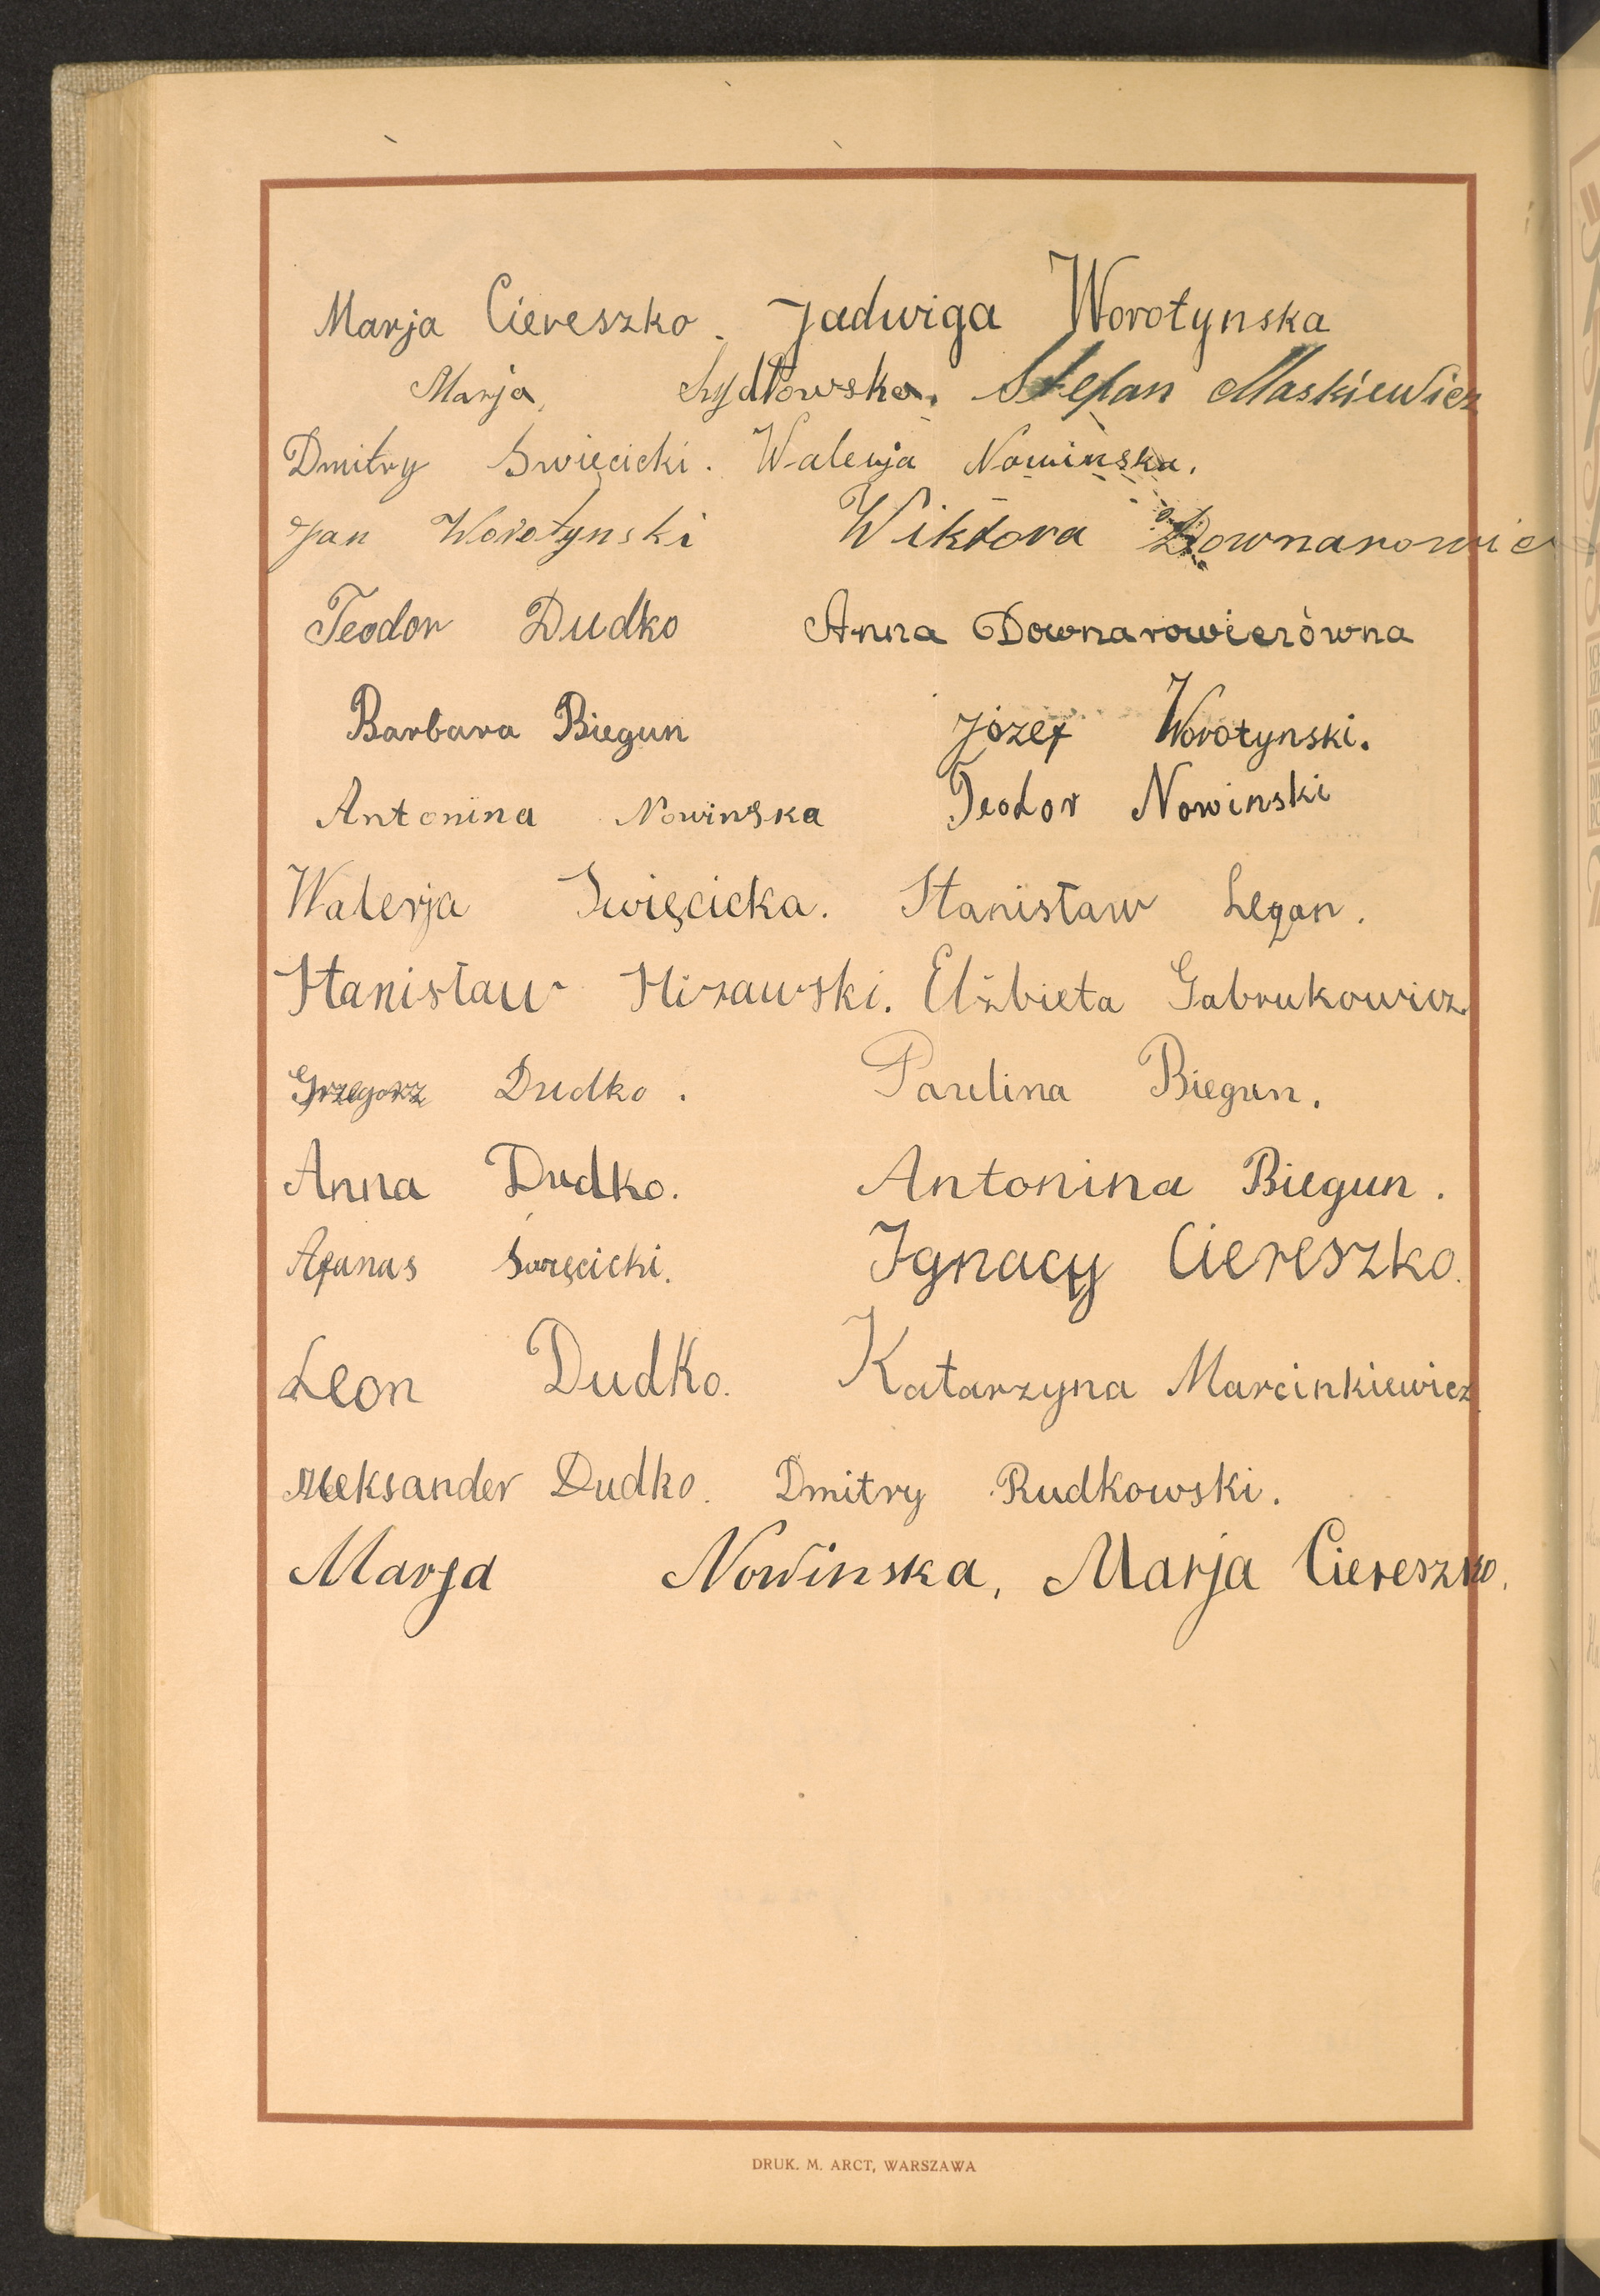 Marja Ciereszko. Jadwiga Worotynska
Marja Szydłowska. Stefan Maskiewicz
Dmitry Swięcicki. Walerja Nowinska.
Jan Worotynski Wiktora Downarowic
Teodor Dudko Anna Downarowiczówna
Barbara Biegun Józef Worotynski.
Antonina Nowinska Teodor Nowinski
Walerja Swięcicka. Stanisław Legan.
Stanisław Hirawski. Elżbieta Gabrukowicz.
Grzegorz Dudko. Paulina Biegun.
Anna Dudko. Antonina Biegun.
Afanas Swięcicki. Ignacy Ciereszko.
Leon Dudko. Katarzyna Marcinkiewicz
Aleksander Dudko. Dmitry Rudkowski.
Marja Nowinska, Marja Ciereszko.
DRUK. M. ARCT, WARSZAWA